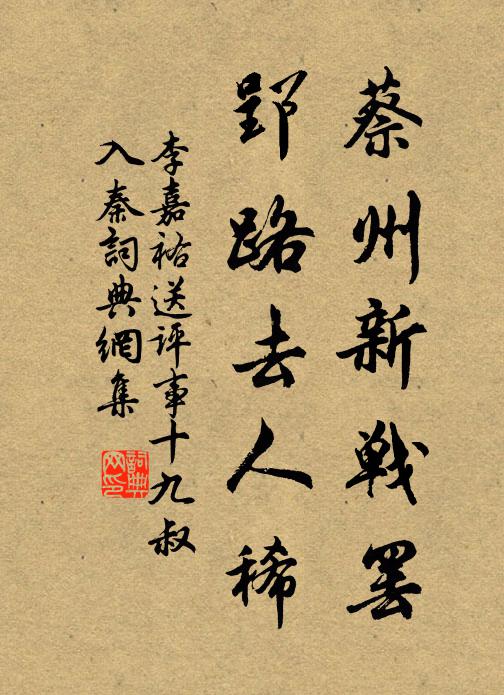 蔡州新戦罷
郢路去人稀
李嘉祐送评事十九叔
入秦詞典網集
詞典網印